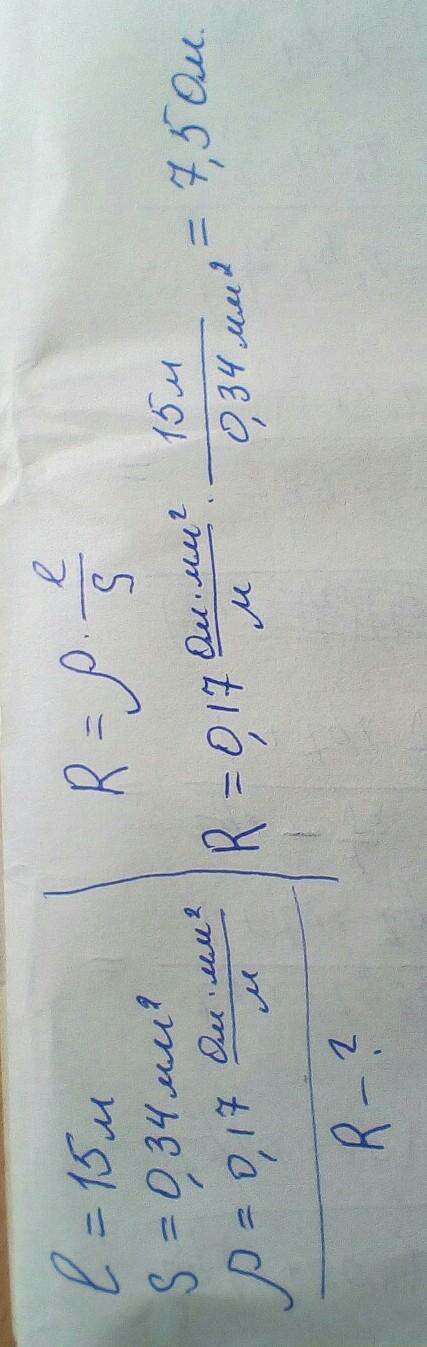 l = 15 м
S = 0,34 мм²
ρ = 0,17 Ом·мм²/м
R - ?
R = ρ · l/S
R = 0,17 Ом·мм²/м · 15 м/0,34 мм² = 7,5 Ом.